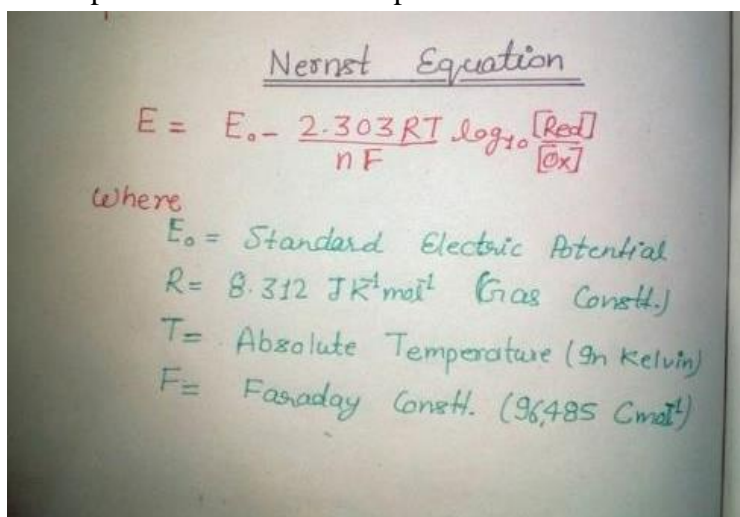 Nernst Equation
E = E₀ - 2.303RT/nF log₁₀ [Red]/[Ox]
Where
E₀ = Standard Electric Potential
R = 8.312 JK⁻¹mol⁻¹ (Gas Constt.)
T = Absolute Temperature (In Kelvin)
F = Faraday Constt. (96,485 Cmol⁻¹)